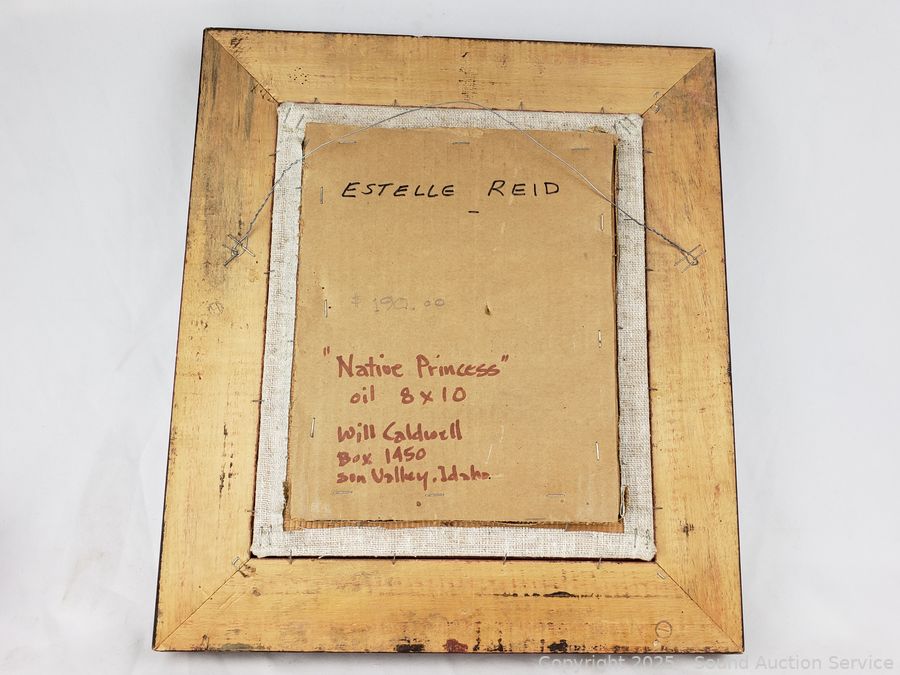 ESTELLE REID
$190.00
"Native Princess"
oil 8x10
Will Caldwell
Box 1450
Sun Valley, Idaho
Copyright 2025 - Sound Auction Service